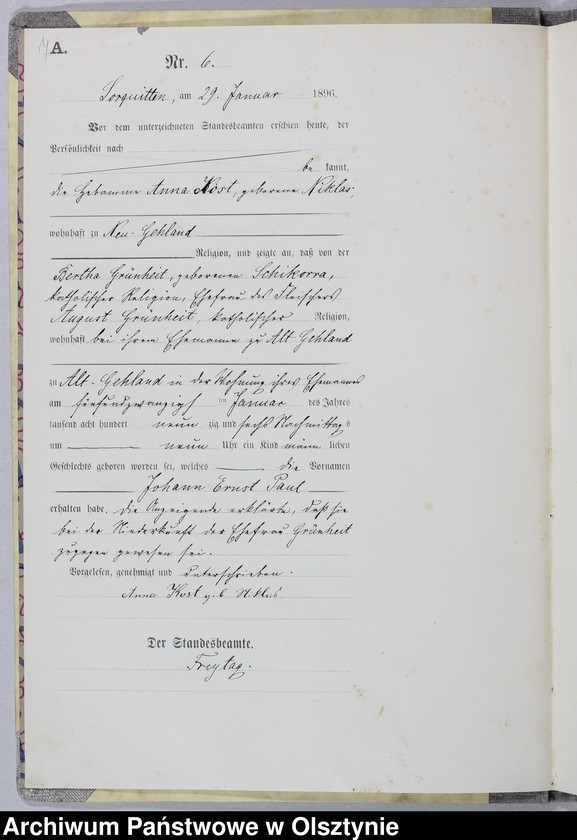 A.
Nr. 6.
Sorquitten, am 29. Januar 1896.
Vor dem unterzeichneten Standesbeamten erschien heute, der
Persönlichkeit nach
be kannt,
die Hebamme Anna Kost, geborene Niklas,
wohnhaft zu Neu-Gehland
Religion, und zeigte an, daß von der
Bertha Grünheit, geborenen Schikorra,
katholischer Religion, Ehefrau des Fleischers
August Grünheit, katholischer Religion,
wohnhaft bei ihrem Ehemanne zu Alt Gehland
zu Alt-Gehland in der Wohnung ihres Ehemannes
am fünfundzwanzigs ten Januar des Jahres
tausend acht hundert neun zig und sechs Nachmittag s
um neun Uhr ein Kind männ lichen
Geschlechts geboren worden sei, welches die Vornamen
Johann Ernst Paul
erhalten habe. Die Anzeigende erklärte, daß sie
bei der Niederkunft der Ehefrau Grünheit
zugegen gewesen sei.
Vorgelesen, genehmigt und unterschrieben.
Anna Kost geb Niklas
Der Standesbeamte.
Freytag.
Archiwum Państwowe w Olsztynie